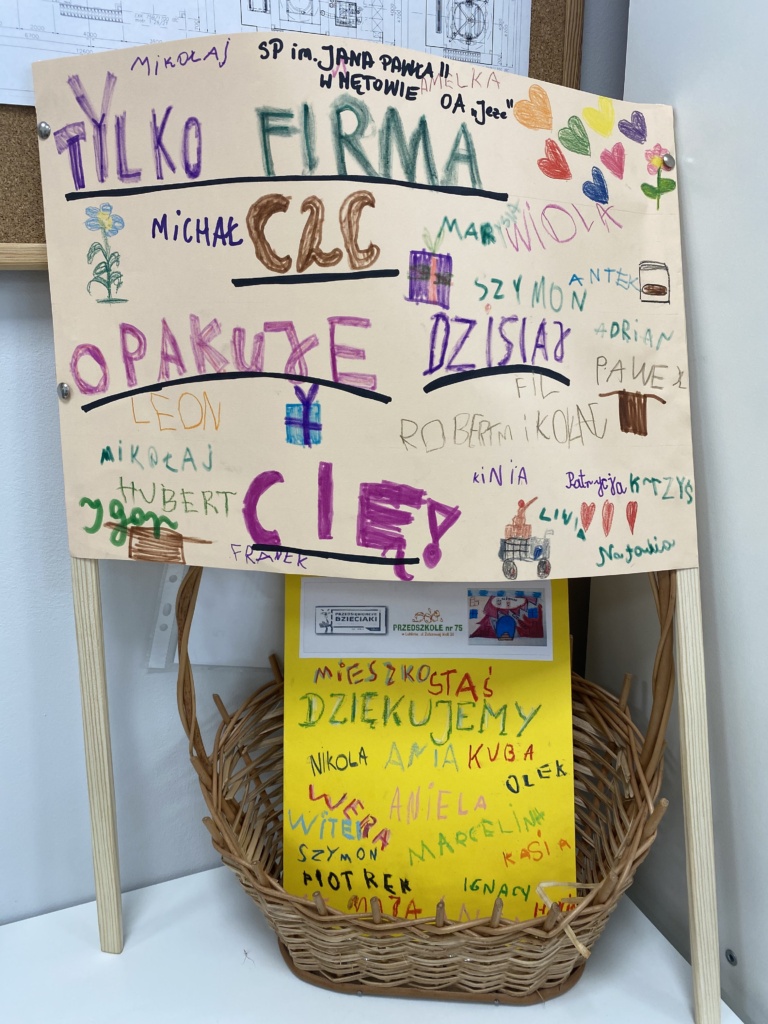 MIKOŁAJ
SP im. JANA PAWŁA II
W MĘTOWIE
AMELKA
OA „Jeże"
TYLKO FIRMA
MICHAŁ
CZC
MARYSIA
WIOLA
SZYMON
ANTEK
OPAKUJE DZISIAJ
ADRIAN
PAWEŁ
FIL
LEON
ROBERT MIKOŁAJ
MIKOŁAJ
HUBERT
Igor
CIĘ!
KINIA
Patrycja
KRZYŚ
LIVIA
Natalia
FRANEK
DZIECIAKI
PRZEDSZKOLE nr 75
MIESZKO
STAŚ
DZIĘKUJEMY
NIKOLA
ANIA
KUBA
OLEK
WERA
ANIELA
WITEK
MARCELINA
SZYMON
KASIA
PIOTREK
IGNACY